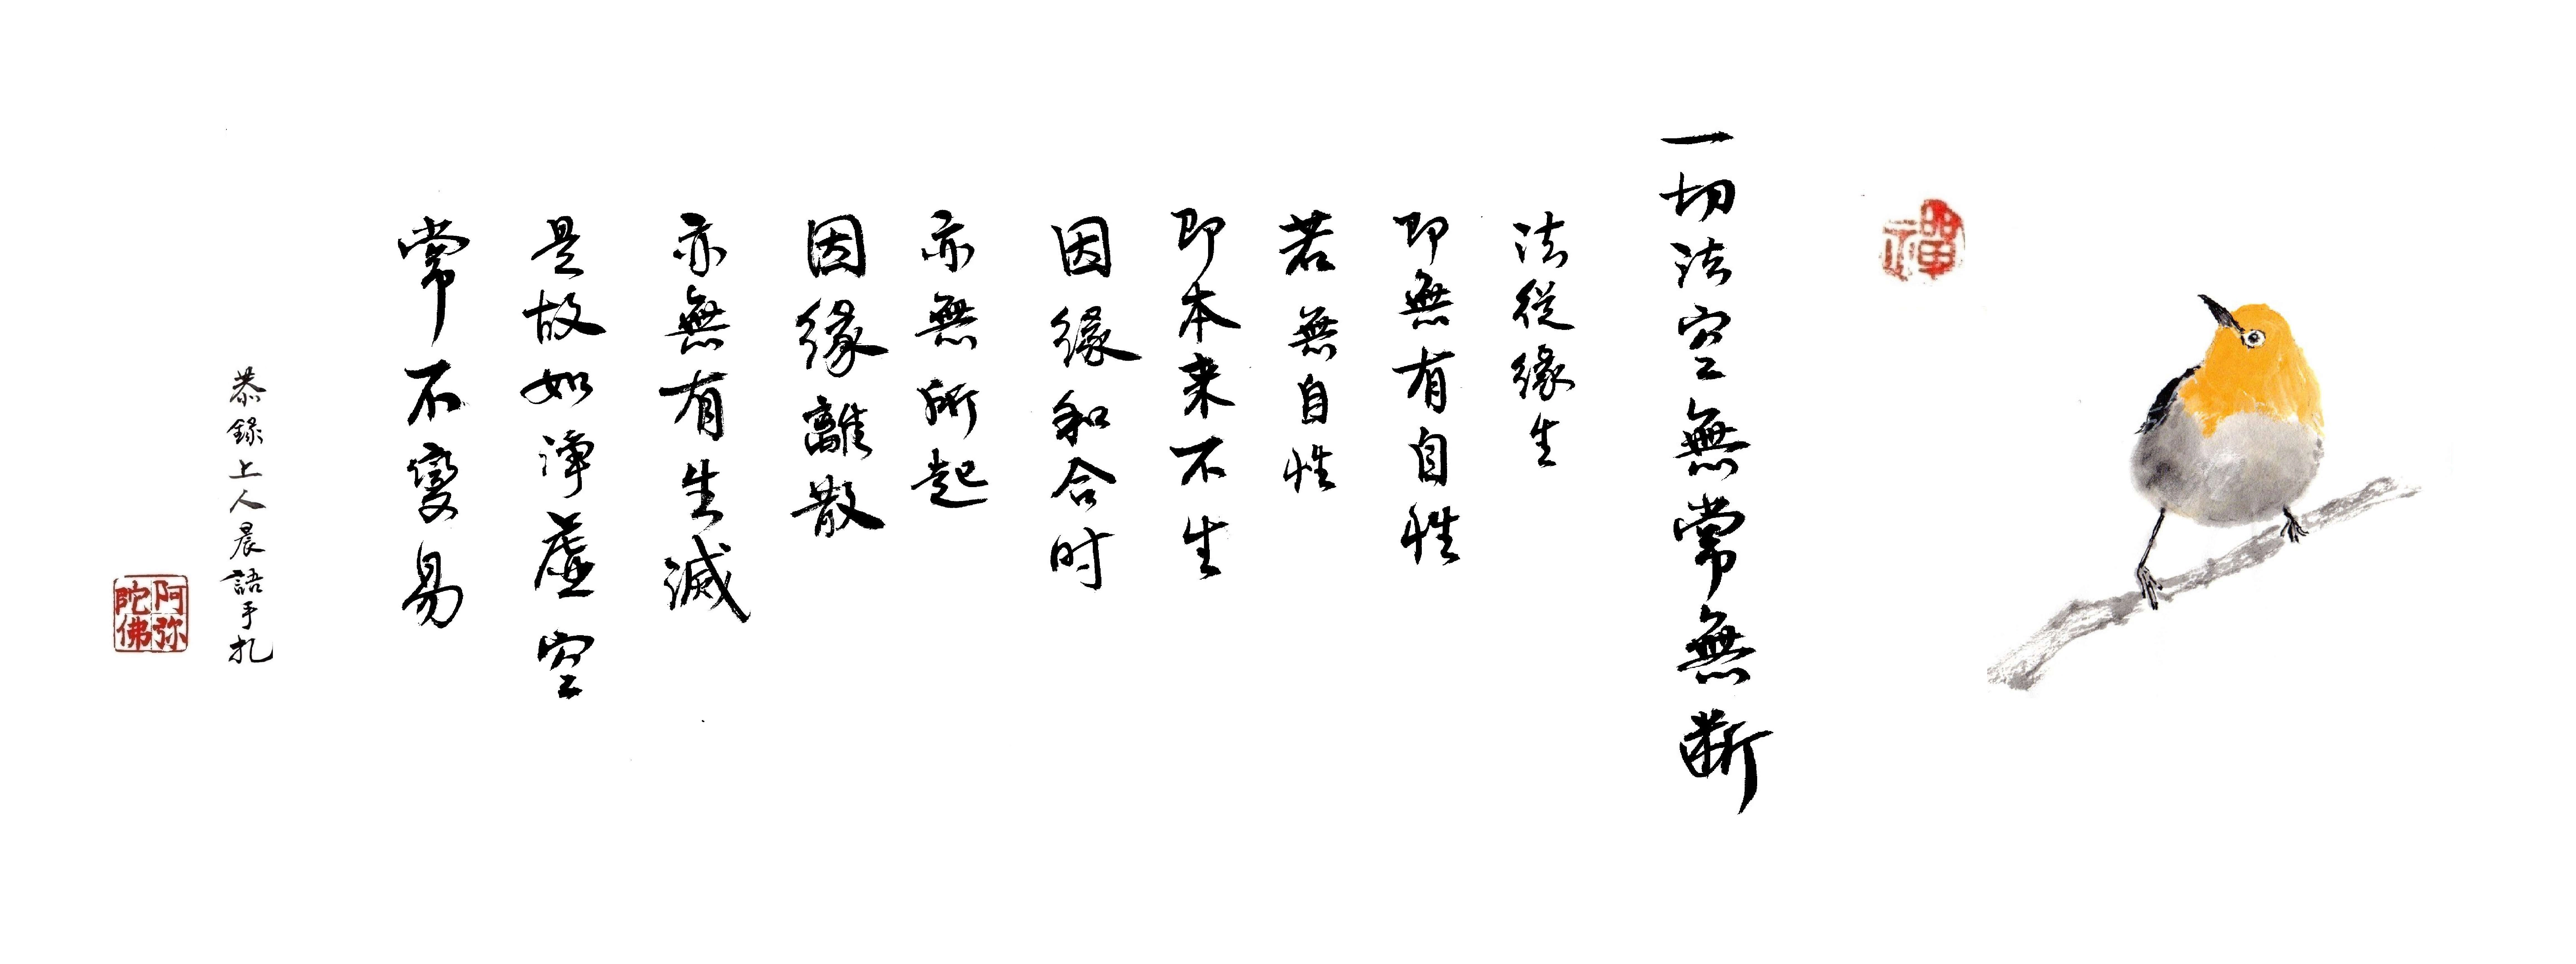 禪
一切法空無常無断
法從緣生
即無有自性
若無自性
即本来不生
因緣和合时
亦無所起
因緣離散
亦無有生滅
是故如淨虛空
常不變易
恭錄上人晨語手札
阿弥
陀佛